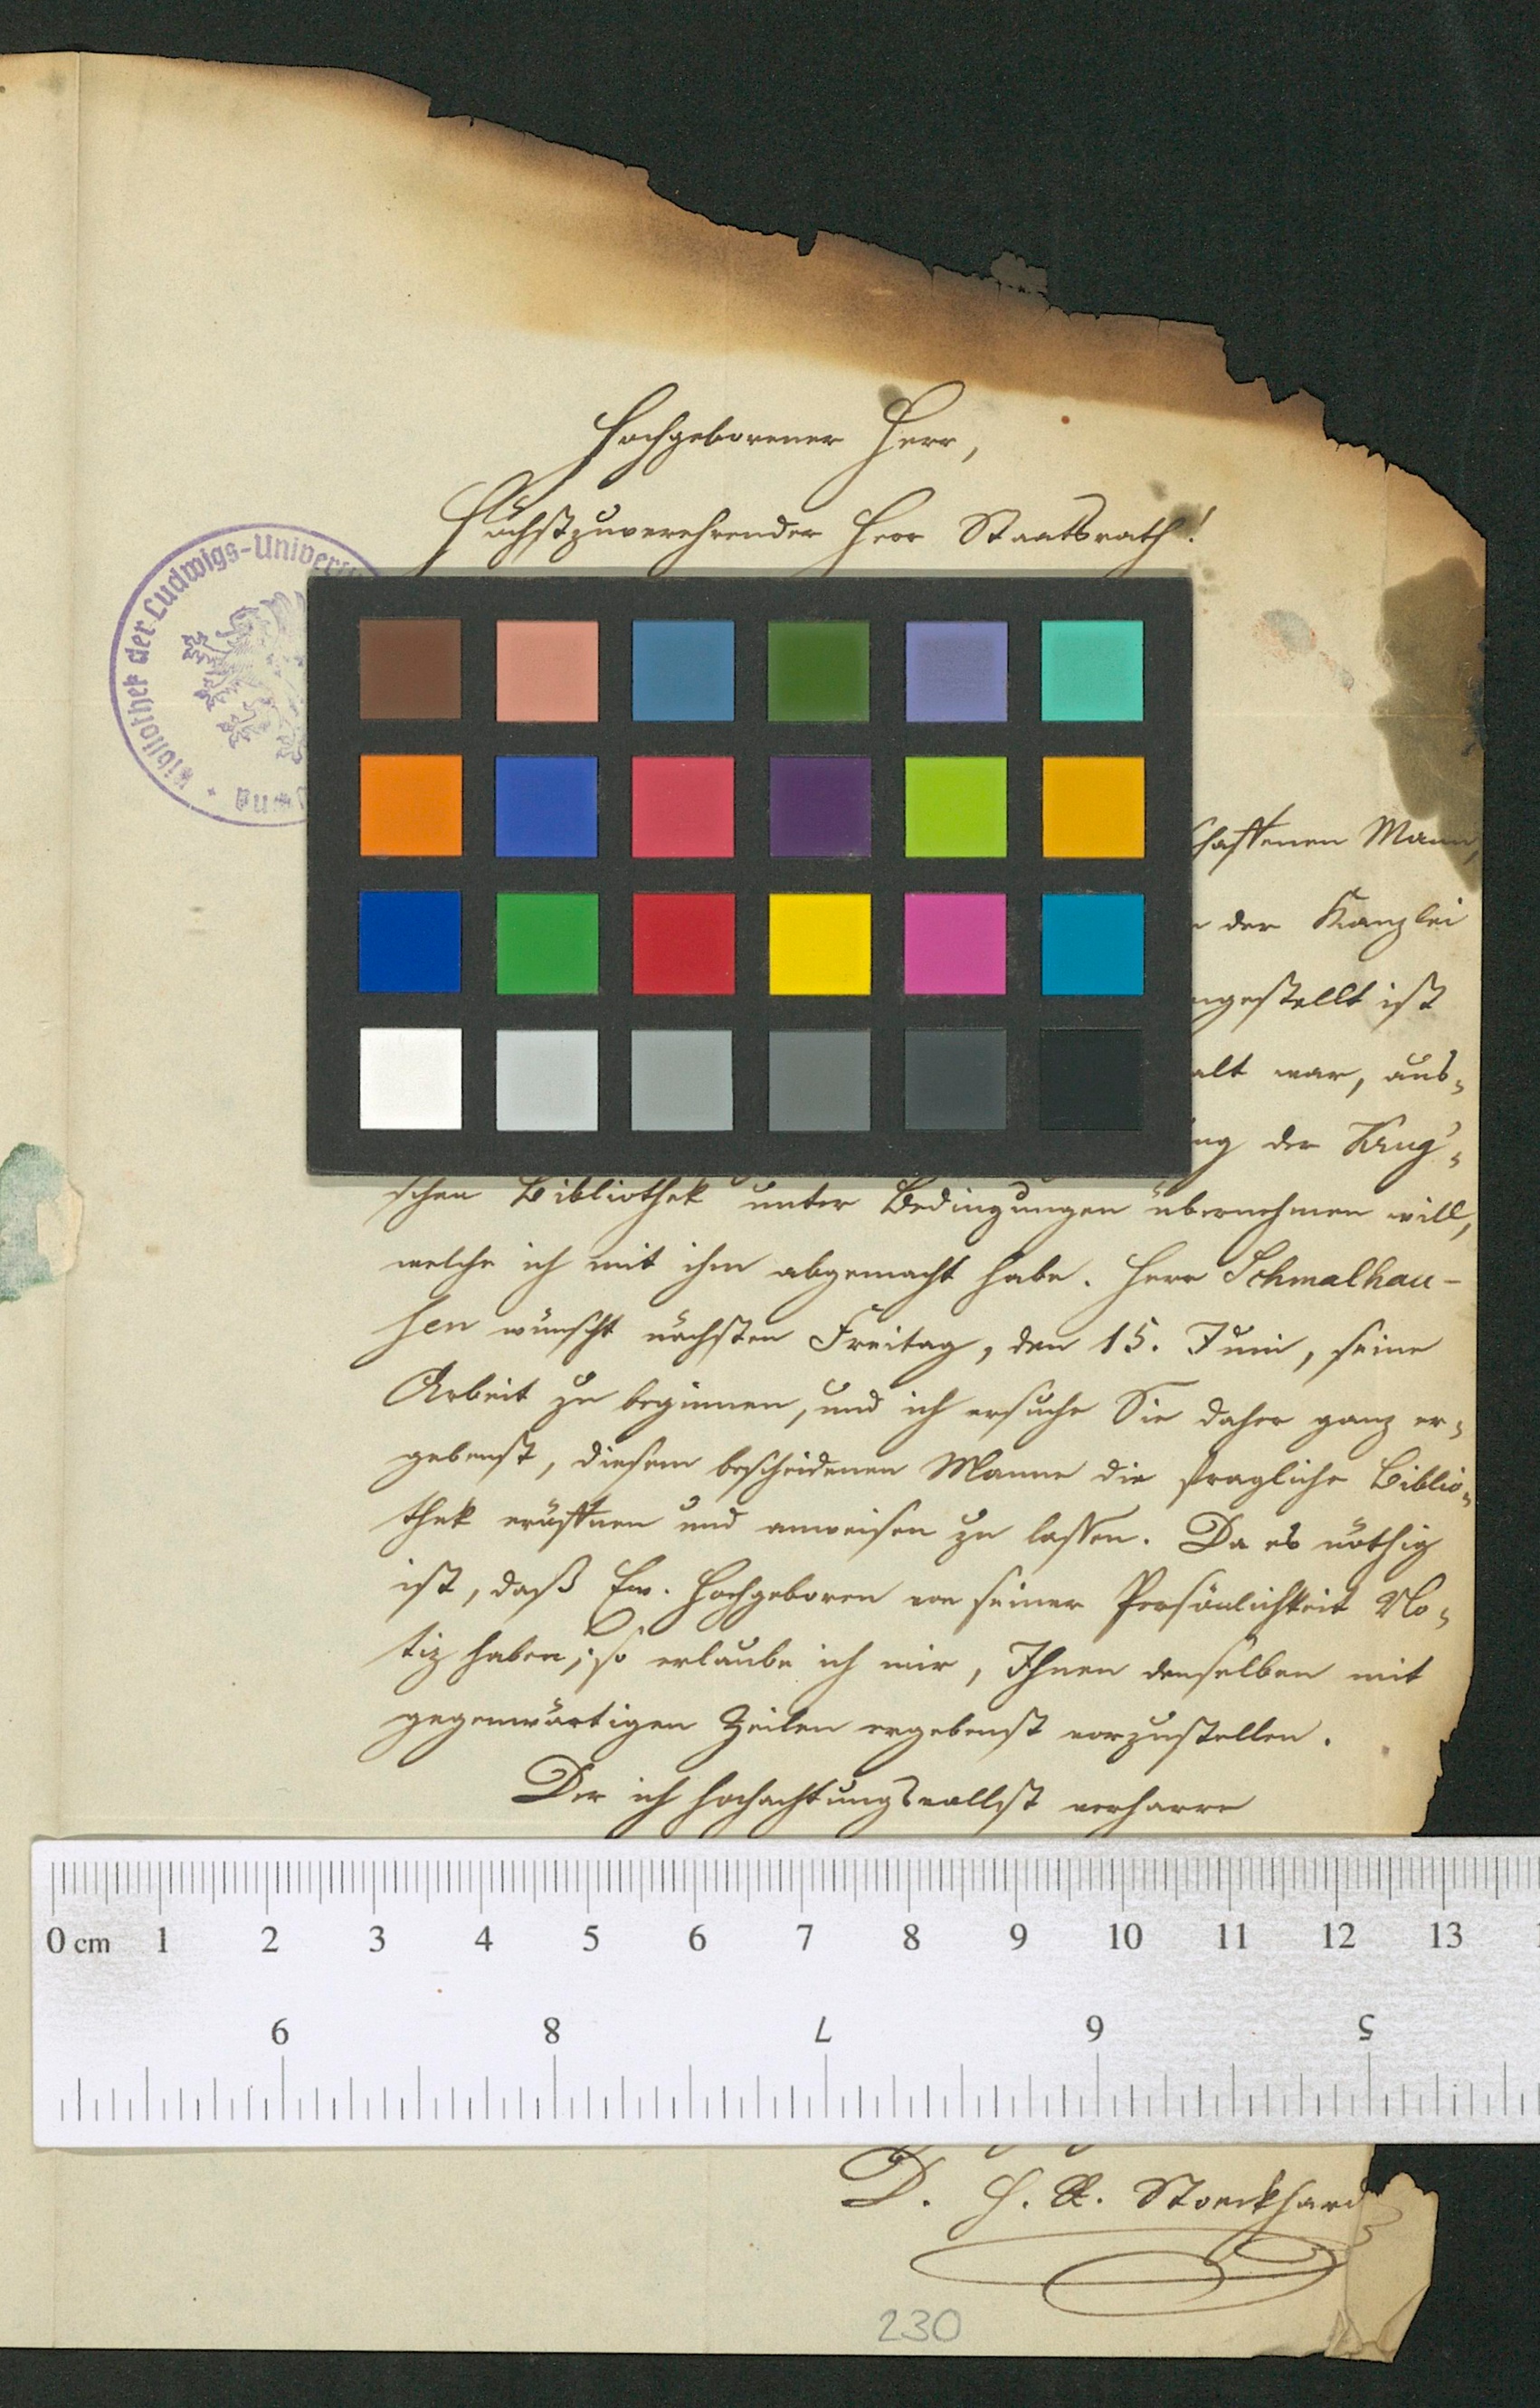 Hochgeborener Herr,
Höchstzuverehrender Herr Staatsrath!
Bibliothek der Ludwigs-Univers
schaffenen Mann,
der Kanzlei
ngestellt ist
alt war, aus-
ung der Krug'-
schen Bibliothek unter Bedingungen übernehmen will,
welche ich mit ihm abgemacht habe. Herr Schmalhau-
sen wünscht nächsten Freitag, den 15. Juni, seine
Arbeit zu beginnen, und ich ersuche Sie daher ganz er-
gebenst, diesem bescheidenen Manne die fragliche Biblio-
thek eröffnen und anweisen zu lassen. Da es nöthig
ist, daß Ew. Hochgeboren von seiner Persönlichkeit No-
tiz haben; so erlaube ich mir, Ihnen denselben mit
gegenwärtigen Zeilen ergebenst vorzustellen.
Der ich hochachtungsvollst verharre
0 cm 1 2 3 4 5 6 7 8 9 10 11 12 13
9 8 7 6 5
D. H. R. Stoeckhard
230